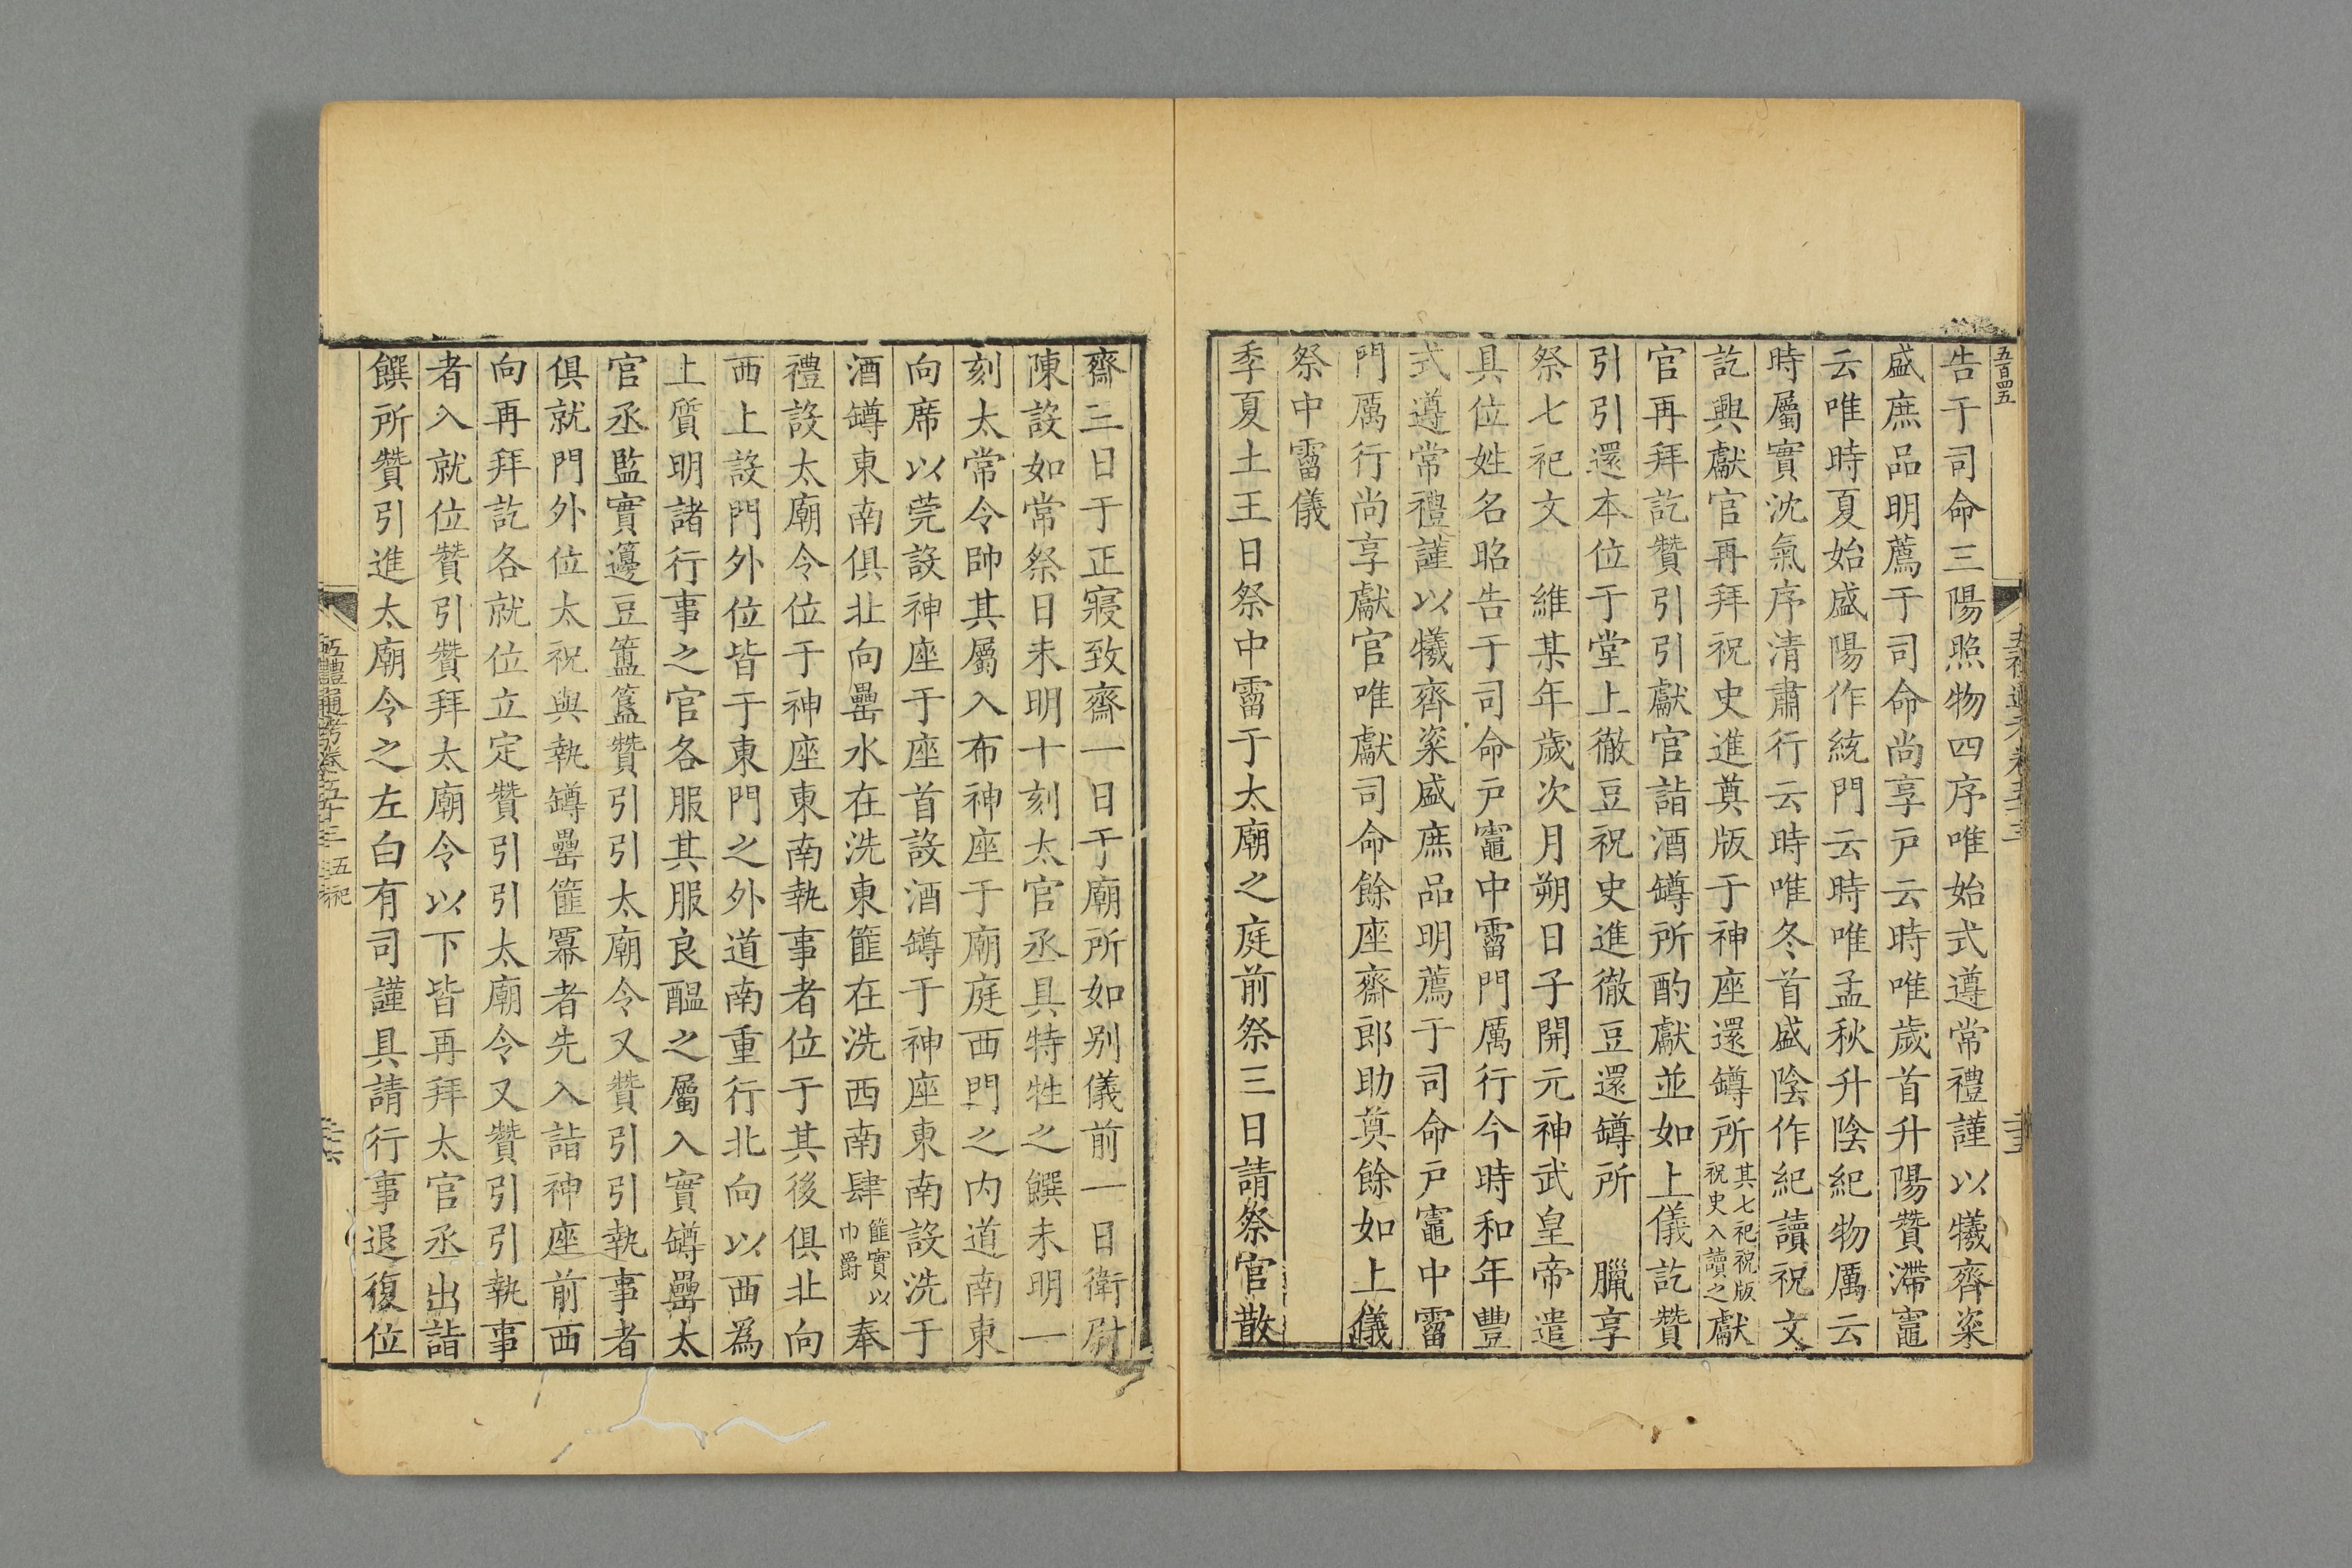 告于司命三陽照物四序唯始式遵常禮謹以犧齊粢
盛庶品明薦于司命尚享戸云時唯歲首升陽贊滯竈
云唯時夏始盛陽作統門云時唯孟秋升陰紀物厲云
時屬實沈氣序清肅行云時唯冬首盛陰作紀讀祝文
訖興獻官再拜祝史進奠版于神座還罇所其七祀祝版祝史入讀之獻
官再拜訖贊引引獻官詣酒罇所酌獻並如上儀訖贊
引引還本位于堂上徹豆祝史進徹豆還罇所　臘享
祭七祀文　維某年歲次月朔日子開元神武皇帝遣
具位姓名昭告于司命戸竈中霤門厲行今時和年豐
式遵常禮謹以犧齊粢盛庶品明薦于司命戸竈中霤
門厲行尚享獻官唯獻司命餘座齋郎助奠餘如上儀
祭中霤儀
季夏土王日祭中霤于太廟之庭前祭三日請祭官散
齋三日于正寢致齋一日于廟所如别儀前一日衛尉
陳設如常祭日未明十刻太官丞具特牲之饌未明一
刻太常令帥其屬入布神座于廟庭西門之内道南東
向席以莞設神座于座首設酒罇于神座東南設洗于
酒罇東南俱北向罍水在洗東篚在洗西南肆篚實以巾爵奉
禮設太廟令位于神座東南執事者位于其後俱北向
西上設門外位皆于東門之外道南重行北向以西為
上質明諸行事之官各服其服良醞之屬入實罇罍太
官丞監實籩豆簠簋贊引引太廟令又贊引引執事者
俱就門外位太祝與執罇罍篚冪者先入詣神座前西
向再拜訖各就位立定贊引引太廟令又贊引引執事
者入就位贊引贊拜太廟令以下皆再拜太官丞出詣
饌所贊引進太廟令之左白有司謹具請行事退復位
五禮通考卷五十三　五祀